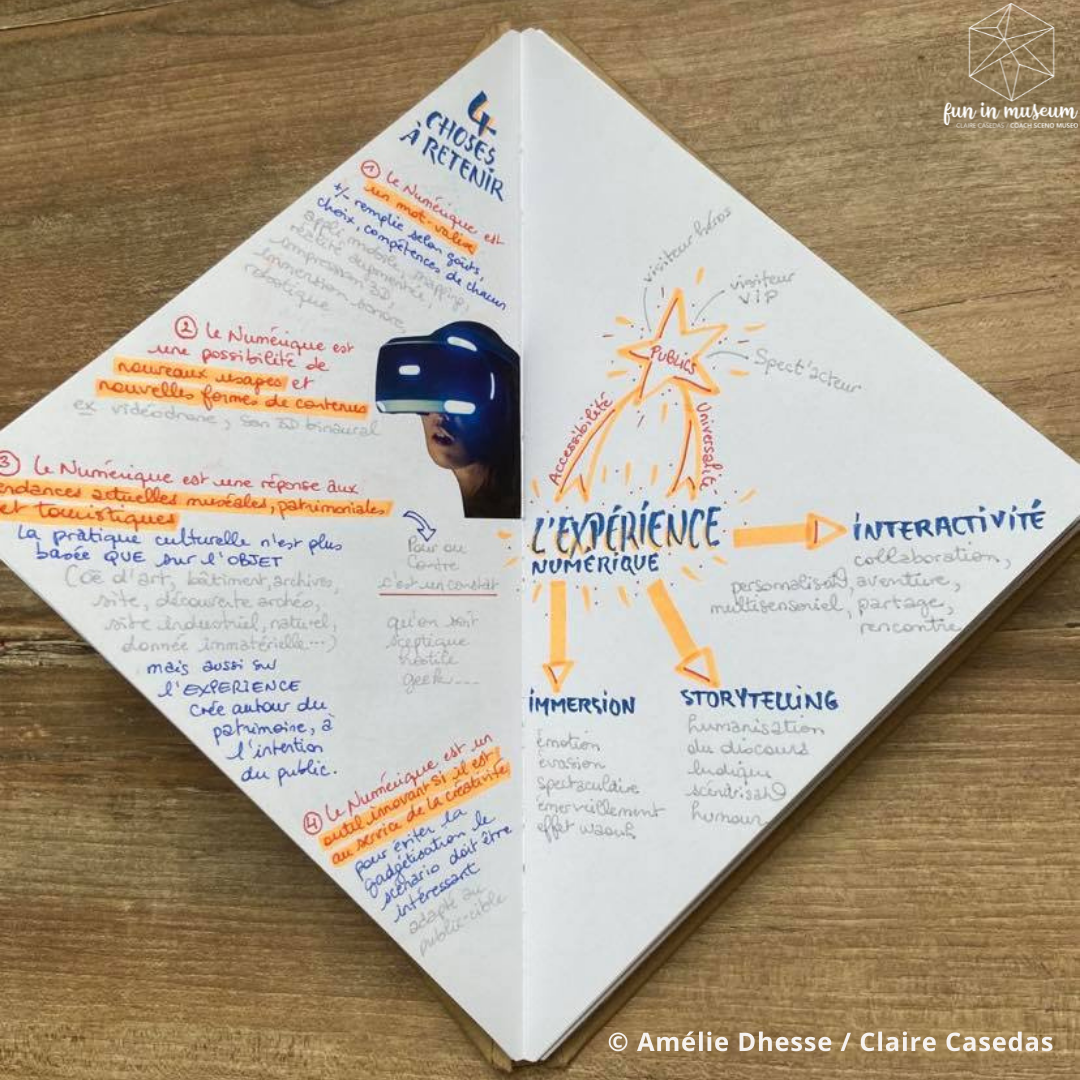 fun in museum
CLAIRE CASEDAS / COACH SCENO MUSEO
4
CHOSES
À RETENIR
① Le Numérique est
un mot-valise
+/- remplie selon goûts,
choix, compétences de chacun
appli mobile, mapping,
réalité augmentée,
impression 3D,
immersion sonore,
robotique
② Le Numérique est
une possibilité de
nouveaux usages et
nouvelles formes de contenus
ex vidéodrone, son 3D binaural
③ Le Numérique est une réponse aux
tendances actuelles muséales, patrimoniales
et touristiques
La pratique culturelle n'est plus
basée QUE sur l'OBJET
(œ d'art, bâtiment, archives,
site, découverte archéo,
site industriel, naturel,
donnée immatérielle...)
mais aussi sur
l'EXPERIENCE
crée autour du
patrimoine, à
l'intention
du public.
Pour ou
Contre
c'est un constat
qu'on soit
sceptique
hostile
geek---
④ Le Numérique est un
outil innovant si il est
au service de la créativité
pour éviter la
gadgétisation le
scénario doit être
intéressant
adapté au
public-cible
visiteur héros
visiteur
VIP
Spect'acteur
PUBLICS
Accessibilité
Universalité
L'EXPÉRIENCE
NUMÉRIQUE
INTERACTIVITÉ
collaboration,
aventure,
multisensoriel, partage,
rencontre
IMMERSION
émotion
évasion
spectaculaire
émerveillement
effet waouh
STORYTELLING
humanisation
du discours
ludique
humour
© Amélie Dhesse / Claire Casedas